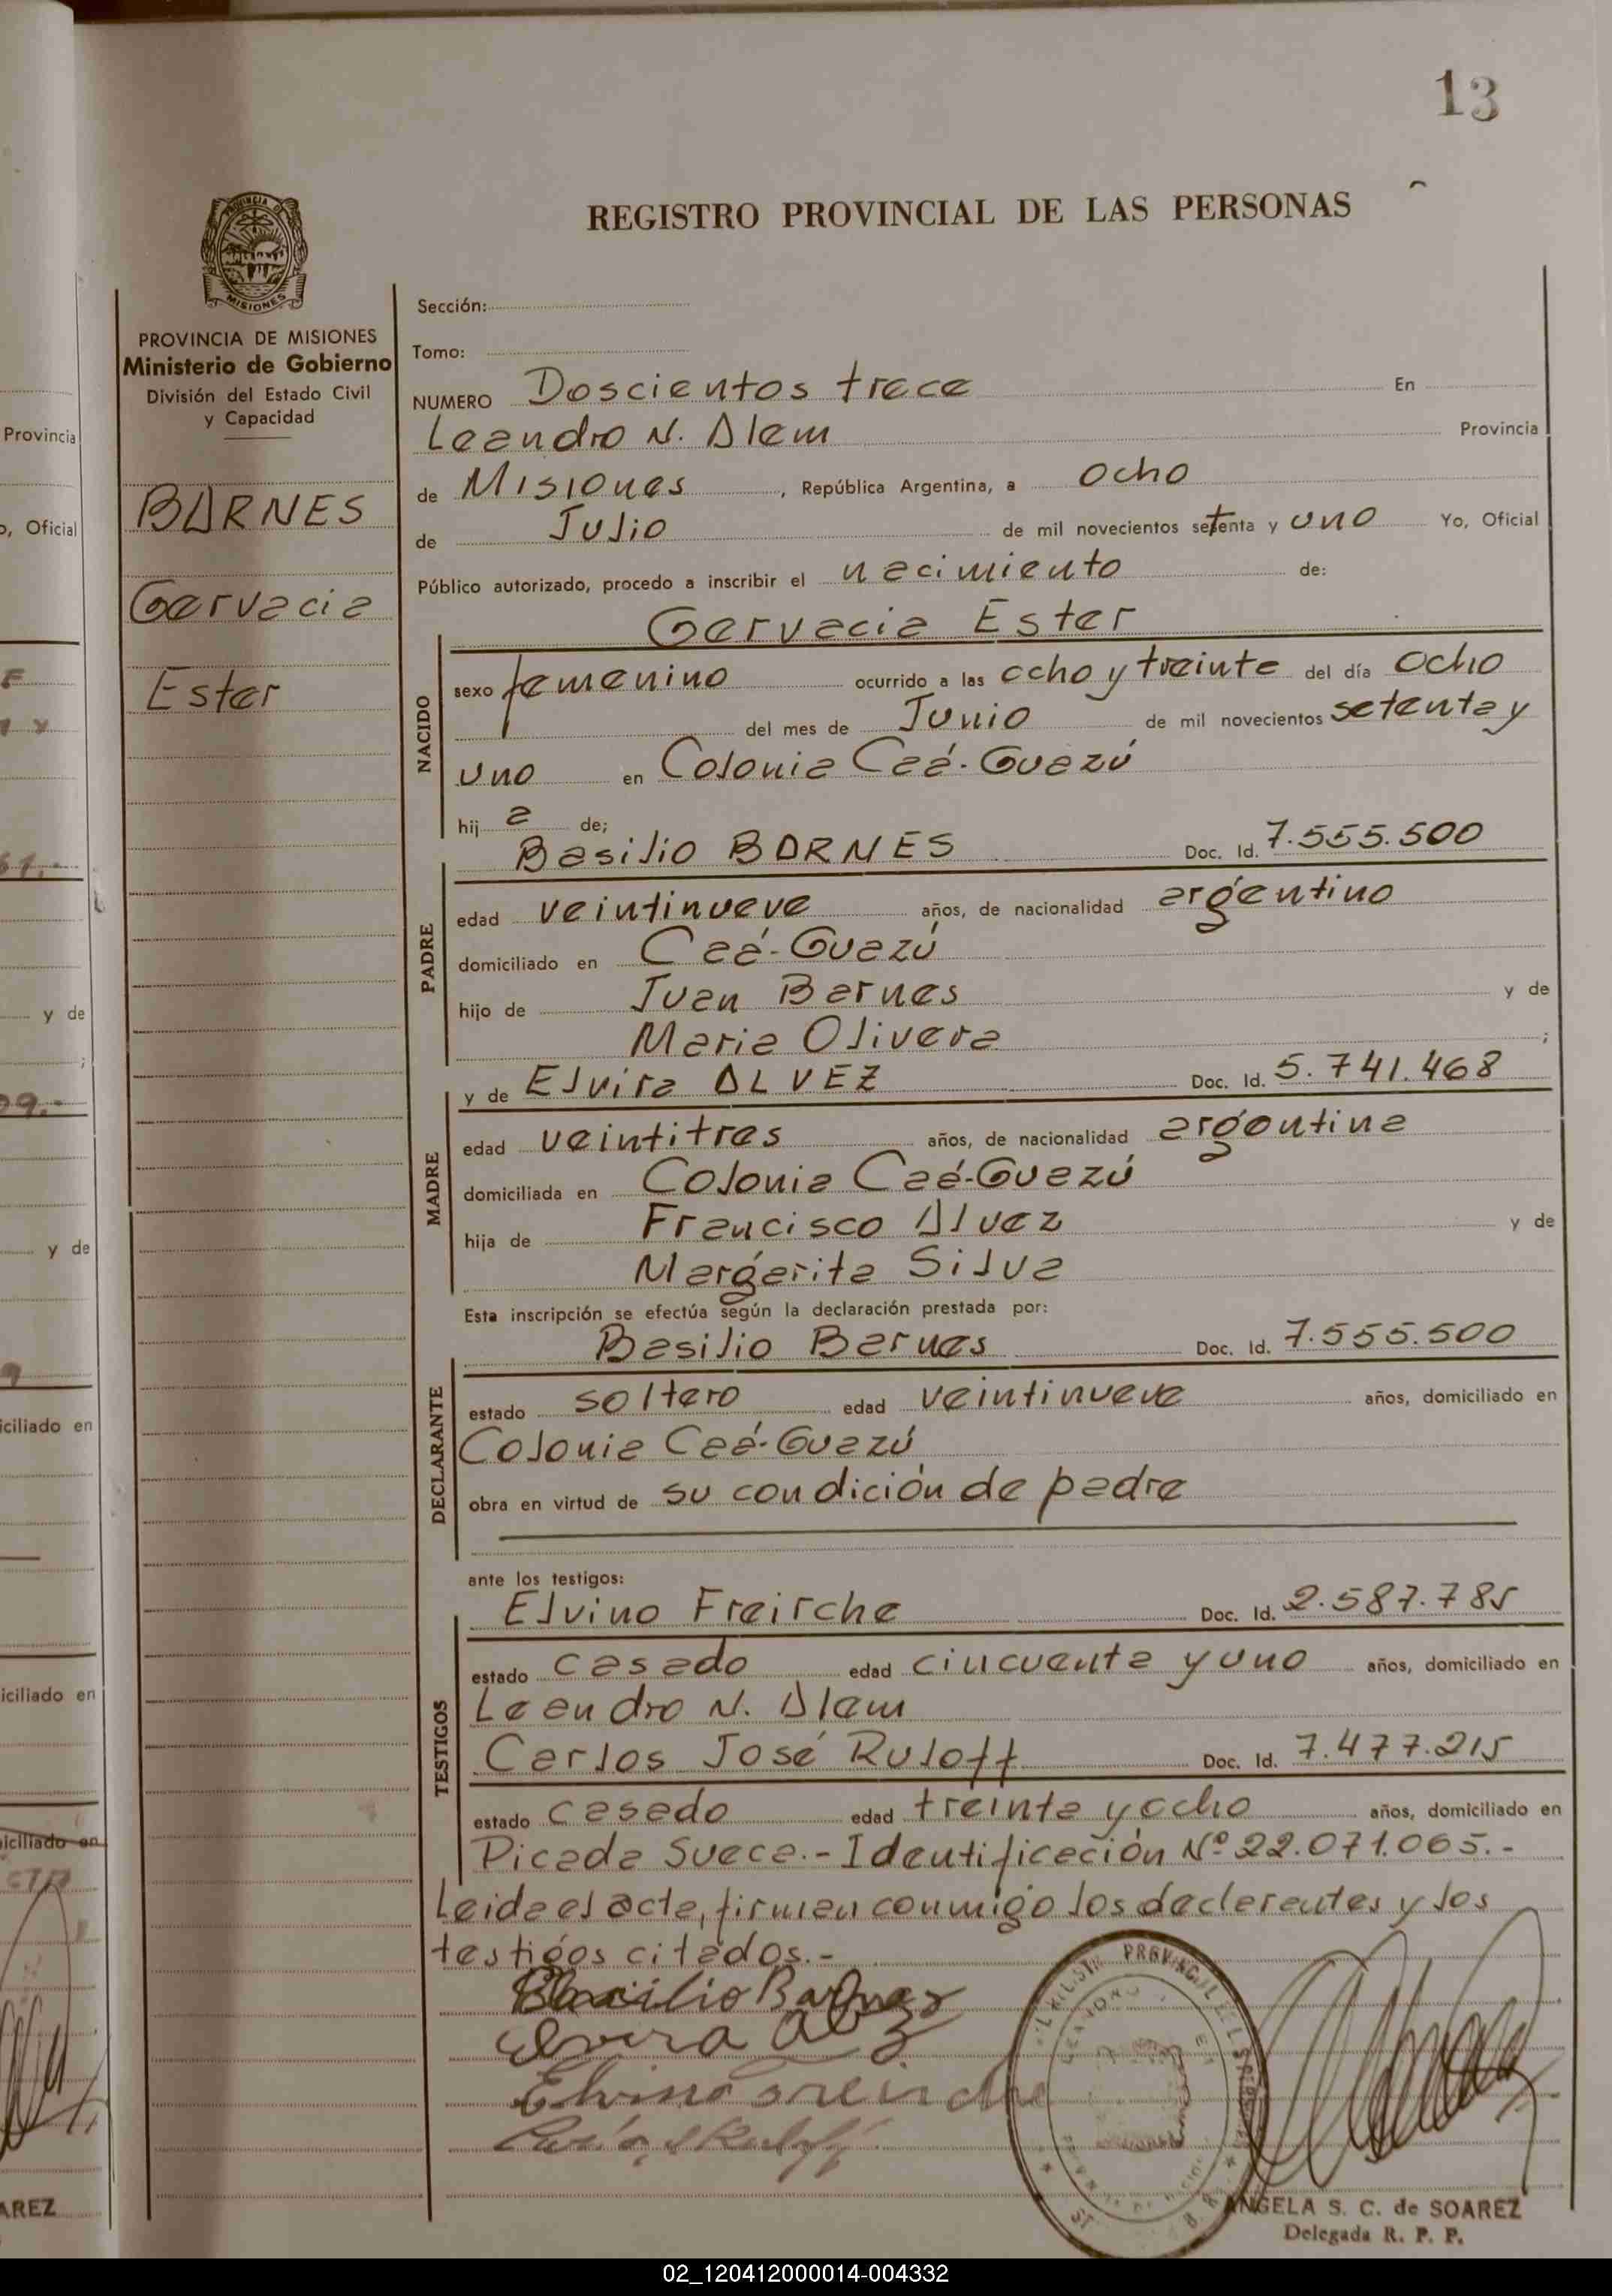 13
REGISTRO PROVINCIAL DE LAS PERSONAS
PROVINCIA DE MISIONES
Ministerio de Gobierno
División del Estado Civil
y Capacidad
BARNES
Gervacia
Ester
Sección:
Tomo:
NUMERO Doscientos trece En
Leandro N. Alem Provincia
de Misiones, República Argentina, a ocho
de Julio de mil novecientos setenta y uno Yo, Oficial
Público autorizado, procedo a inscribir el nacimiento de:
Gervacia Ester
NACIDO
sexo femenino ocurrido a las ocho y treinta del día ocho
del mes de Junio de mil novecientos setenta y
uno en Colonia Caá-Guazú
hij a de;
Basilio BARNES Doc. Id. 7.555.500
PADRE
edad veintinueve años, de nacionalidad argentino
domiciliado en Caá-Guazú
hijo de Juan Barnes y de
Maria Olivera ;
y de Elvira ALVEZ Doc. Id. 5.741.468
MADRE
edad veintitres años, de nacionalidad argentina
domiciliada en Colonia Caá-Guazú
hija de Francisco Alvez y de
Margarita Silva
Esta inscripción se efectúa según la declaración prestada por:
Basilio Barnes Doc. Id. 7.555.500
DECLARANTE
estado soltero edad veintinueve años, domiciliado en
Colonia Caá-Guazú
obra en virtud de su condición de padre
ante los testigos:
Elvino Freirche Doc. Id. 2.587.785
TESTIGOS
estado casado edad cincuenta y uno años, domiciliado en
Leandro N. Alem
Carlos José Ruloff Doc. Id. 7.477.215
estado casado edad treinta y ocho años, domiciliado en
Picada Sueca.- Identificación Nº 22.071.065.-
Leida el acta, firman conmigo los declarantes y los
testigos citados.-
Basilio Barnes
Elvira Alvez
Elvino Freirche
ANGELA S. C. de SOAREZ
Delegada R. P. P.
Provincia
o, Oficial
y de
;
y de
iciliado en
iciliado en
iciliado en
AREZ
02_120412000014-004332